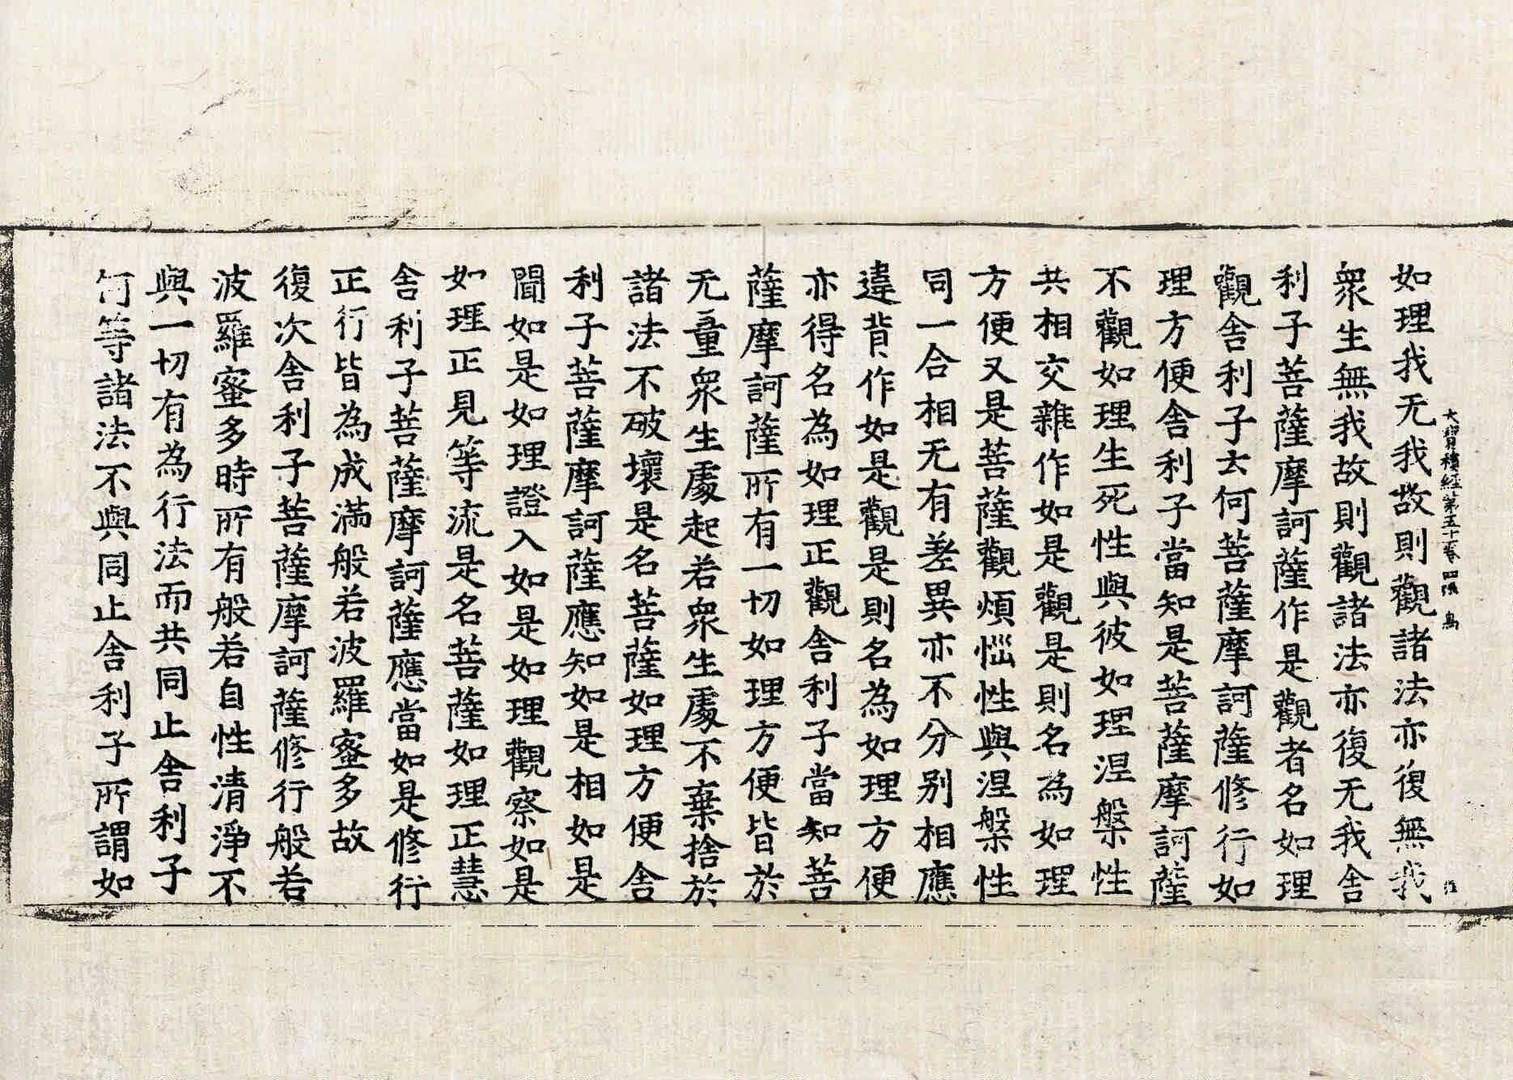 大寶積經第五十卷 四張 鳥
如理我无我故則觀諸法亦復無我
衆生無我故則觀諸法亦復无我舍
利子菩薩摩訶薩作是觀者名如理
觀舍利子云何菩薩摩訶薩修行如
理方便舍利子當知是菩薩摩訶薩
不觀如理生死性與彼如理涅槃性
共相交雜作如是觀是則名為如理
方便又是菩薩觀煩惱性與涅槃性
同一合相无有差異亦不分别相應
違背作如是觀是則名為如理方便
亦得名為如理正觀舍利子當知菩
薩摩訶薩所有一切如理方便皆於
无量衆生處起若衆生處不棄捨於
諸法不破壞是名菩薩如理方便舍
利子菩薩摩訶薩應知如是相如是
聞如是如理證入如是如理觀察如是
如理正見等流是名菩薩如理正慧
舍利子菩薩摩訶薩應當如是修行
正行皆為成滿般若波羅蜜多故
復次舍利子菩薩摩訶薩修行般若
波羅蜜多時所有般若自性清淨不
與一切有為行法而共同止舍利子
何等諸法不與同止舍利子所謂如